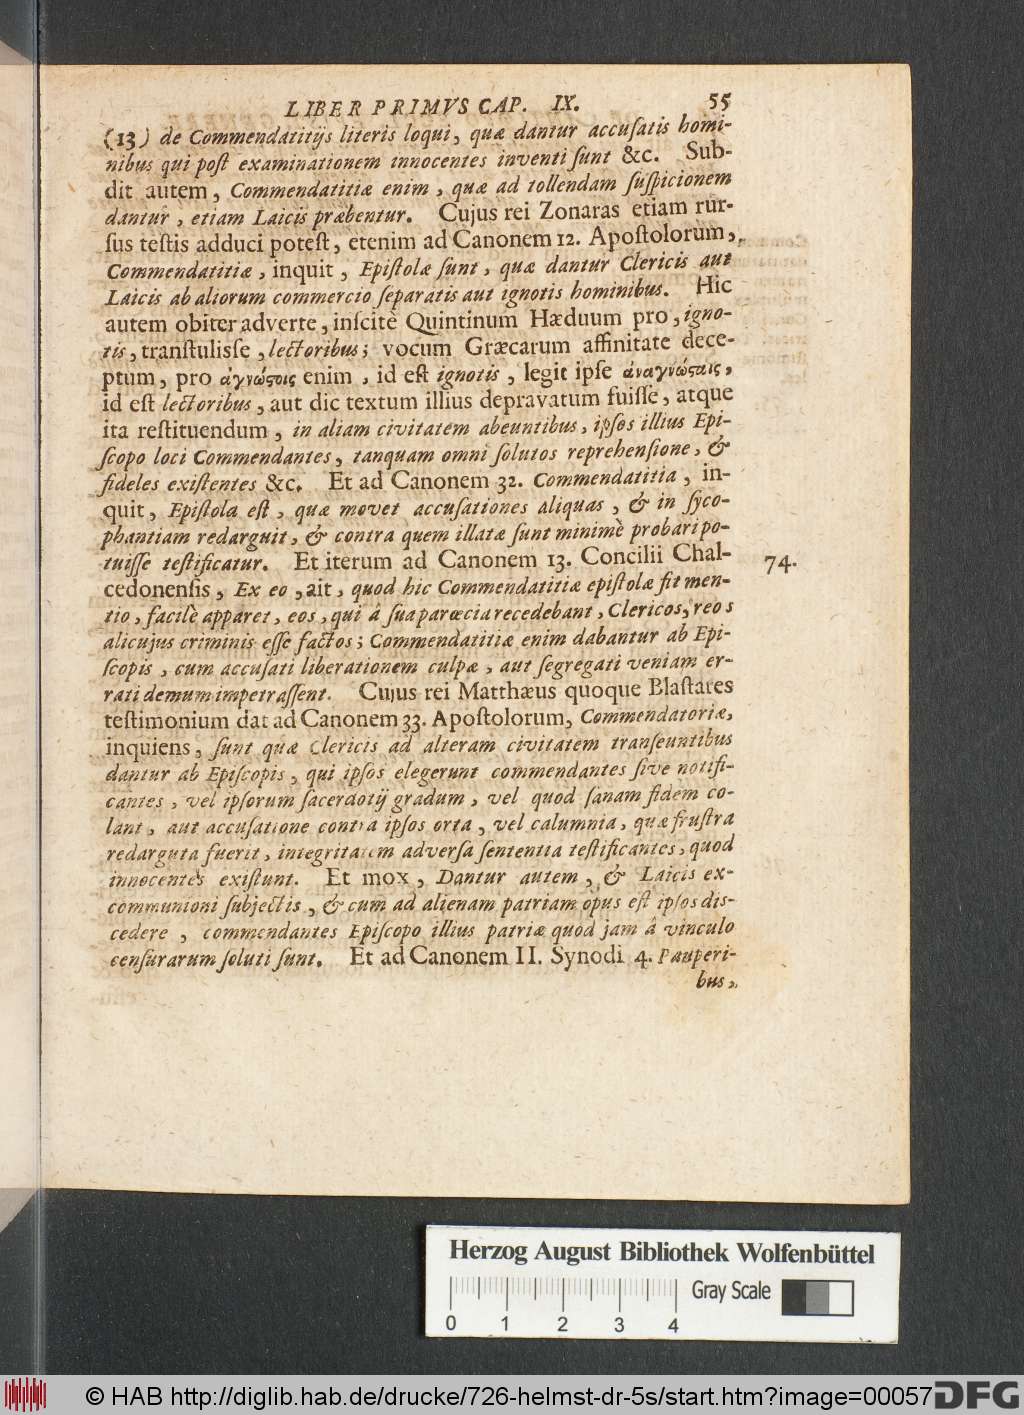 LIBER PRIMVS CAP. IX. 55
(13) de Commendatitijs literis loqui, quæ dantur accuſatis homi-
nibus qui poſt examinationem innocentes inventi ſunt &c. Sub-
dit autem, Commendatitiæ enim, quæ ad tollendam ſuſpicionem
dantur, etiam Laicis præbentur. Cujus rei Zonaras etiam rur-
ſus teſtis adduci poteſt, etenim ad Canonem 12. Apoſtolorum,
Commendatitiæ, inquit, Epiſtolæ ſunt, quæ dantur Clericis aut
Laicis ab aliorum commercio ſeparatis aut ignotis hominibus. Hic
autem obiter adverte, inſcitè Quintinum Hæduum pro, igno-
tis, tranſtuliſſe, lectoribus; vocum Græcarum affinitate dece-
ptum, pro ἀγνώϛοις enim, id eſt ignotis, legit ipſe ἀναγνώϛαις,
id eſt lectoribus, aut dic textum illius depravatum fuiſſe, atque
ita reſtituendum, in aliam civitatem abeuntibus, ipſos illius Epi-
ſcopo loci Commendantes, tanquam omni ſolutos reprehenſione, &
fideles exiſtentes &c. Et ad Canonem 32. Commendatitia, in-
quit, Epiſtola eſt, quæ movet accuſationes aliquas, & in ſyco-
phantiam redarguit, & contra quem illatæ ſunt minimè probari po-
tuiſſe teſtificatur. Et iterum ad Canonem 13. Concilii Chal-
74.
cedonenſis, Ex eo, ait, quod hic Commendatitiæ epiſtolæ fit men-
tio, facilè apparet, eos, qui â ſua parœcia recedebant, Clericos, reos
alicujus criminis eſſe factos; Commendatitiæ enim dabantur ab Epi-
ſcopis, cum accuſati liberationem culpæ, aut ſegregati veniam er-
rati demum impetraſſent. Cujus rei Matthæus quoque Blaſtares
teſtimonium dat ad Canonem 33. Apoſtolorum, Commendatoriæ,
inquiens, ſunt quæ Clericis ad alteram civitatem tranſeuntibus
dantur ab Epiſcopis, qui ipſos elegerunt commendantes ſive notifi-
cantes, vel ipſorum ſacerdotij gradum, vel quod ſanam fidem co-
lant, aut accuſatione contra ipſos orta, vel calumnia, quæ fruſtra
redarguta fuerit, integritatem adverſa ſententia teſtificantes, quod
innocentes exiſtunt. Et mox, Dantur autem, & Laicis ex-
communioni ſubjectis, & cum ad alienam patriam opus eſt ipſos diſ-
cedere, commendantes Epiſcopo illius patriæ quod jam â vinculo
cenſurarum ſoluti ſunt. Et ad Canonem II. Synodi 4. Pauperi-
bus,
Herzog August Bibliothek Wolfenbüttel
Gray Scale
0 1 2 3 4
© HAB http://diglib.hab.de/drucke/726-helmst-dr-5s/start.htm?image=00057
DFG